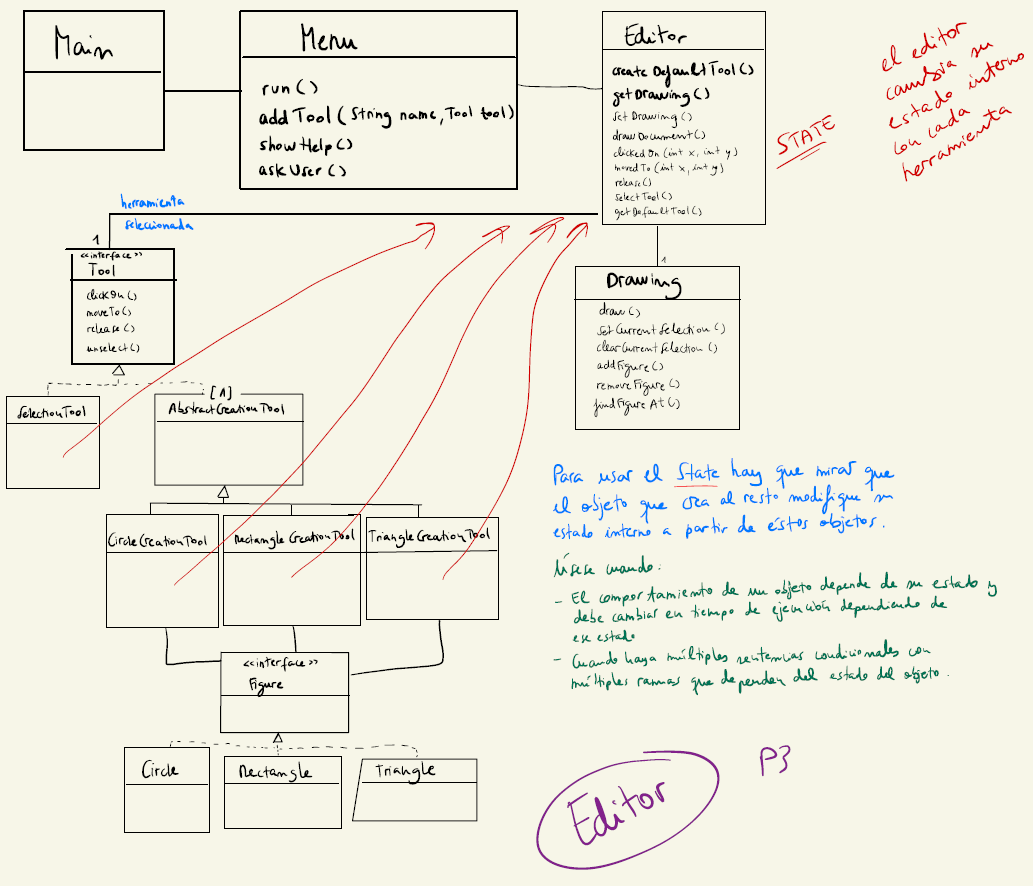 Main
Menu
run()
addTool(String name, Tool tool)
showHelp()
askUser()
Editor
createDefaultTool()
getDrawing()
setDrawing()
drawDocument()
clickedOn(int x, int y)
movedTo(int x, int y)
release()
selectTool()
getDefaultTool()
STATE
el editor
cambia su
estado interno
con cada
herramienta
herramienta
seleccionada
1
<<interface>>
Tool
clickOn()
moveTo()
release()
unselect()
1
Drawing
draw()
setCurrentSelection()
clearCurrentSelection()
addFigure()
removeFigure()
findFigureAt()
SelectionTool
[1]
AbstractCreationTool
CircleCreationTool
RectangleCreationTool
TriangleCreationTool
<<interface>>
Figure
Circle
Rectangle
Triangle
Para usar el State hay que mirar que
el objeto que crea al resto modifique su
estado interno a partir de éstos objetos.
Úsese cuando:
- El comportamiento de un objeto depende de su estado y
debe cambiar en tiempo de ejecución dependiendo de
ese estado
- Cuando haya múltiples sentencias condicionales con
múltiples ramas que dependen del estado del objeto.
Editor
P3